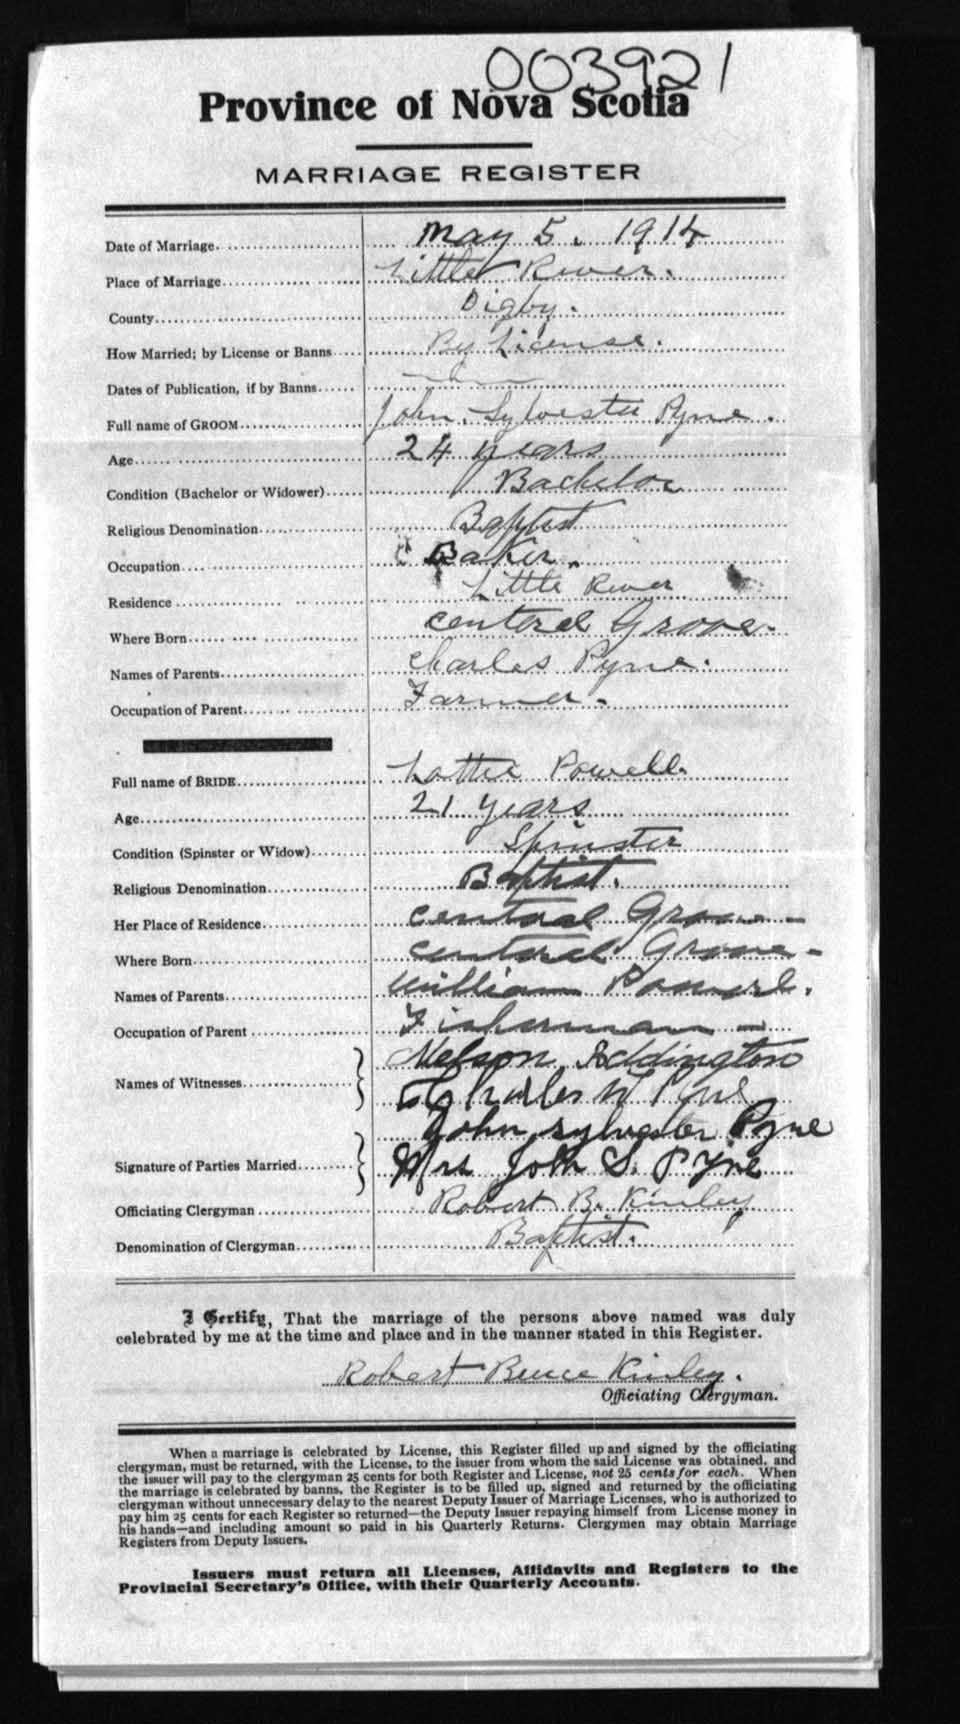 003921
Province of Nova Scotia
MARRIAGE REGISTER
Date of Marriage May 5. 1914
Place of Marriage Little River.
County Digby.
How Married; by License or Banns By License.
Dates of Publication, if by Banns
Full name of GROOM John Sylvester Pyne.
Age 24 years
Condition (Bachelor or Widower) Bachelor
Religious Denomination Baptist
Occupation Baker.
Residence Little River
Where Born Central Grove.
Names of Parents Charles Pyne.
Occupation of Parent Farmer.
Full name of BRIDE Lottie Powell
Age 21 years
Condition (Spinster or Widow) Spinster
Religious Denomination Baptist.
Her Place of Residence Central Grove
Where Born Central Grove
Names of Parents William Powell.
Occupation of Parent Fisherman
Names of Witnesses Melson Addington
Charles W Pyne
John sylvester Pyne
Signature of Parties Married Mrs John S. Pyne
Officiating Clergyman Robert B. Kinley
Denomination of Clergyman Baptist.
I Certify, That the marriage of the persons above named was duly
celebrated by me at the time and place and in the manner stated in this Register.
Robert Bruce Kinley.
Officiating Clergyman.
When a marriage is celebrated by License, this Register filled up and signed by the officiating
clergyman, must be returned, with the License, to the issuer from whom the said License was obtained, and
the issuer will pay to the clergyman 25 cents for both Register and License, not 25 cents for each. When
the marriage is celebrated by banns, the Register is to be filled up, signed and returned by the officiating
clergyman without unnecessary delay to the nearest Deputy Issuer of Marriage Licenses, who is authorized to
pay him 25 cents for each Register so returned—the Deputy Issuer repaying himself from License money in
his hands—and including amount so paid in his Quarterly Returns. Clergymen may obtain Marriage
Registers from Deputy Issuers.
Issuers must return all Licenses, Affidavits and Registers to the
Provincial Secretary's Office, with their Quarterly Accounts.